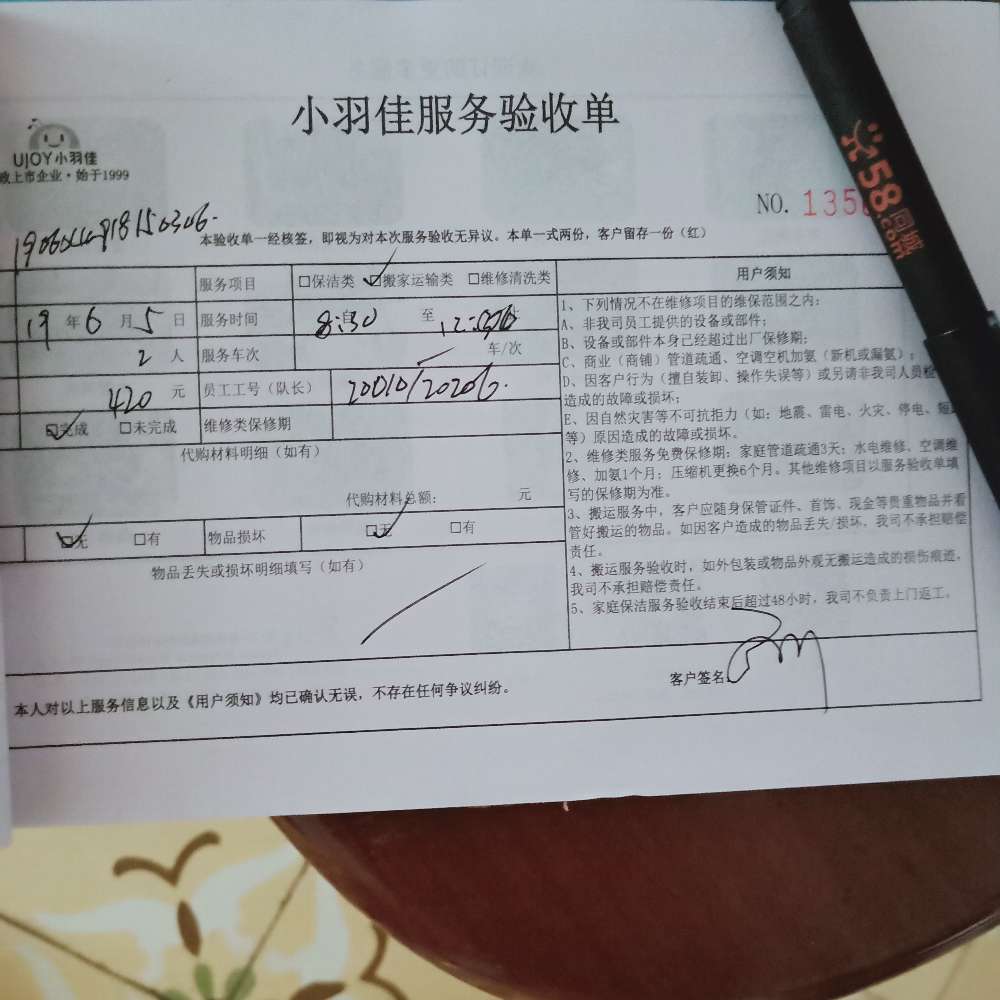 小羽佳服务验收单
UJOY小羽佳
政上市企业·始于1999
NO. 135
58同城
58.com
本验收单一经核签，即视为对本次服务验收无异议。本单一式两份，客户留存一份（红）
服务项目 □保洁类 ☑搬家运输类 □维修清洗类
19 年 6 月 5 日 服务时间 8:30 至
2 人 服务车次 车/次
420 元 员工工号（队长） 20010/20206
☑完成 □未完成 维修类保修期
代购材料明细（如有）
代购材料总额： 元
☑无 □有 物品损坏 ☑无 □有
物品丢失或损坏明细填写（如有）
用户须知
1、下列情况不在维修项目的维保范围之内：
A、非我司员工提供的设备或部件；
B、设备或部件本身已经超过出厂保修期；
C、商业（商铺）管道疏通、空调空机加氨（新机或漏氨）；
D、因客户行为（擅自装卸、操作失误等）或另请非我司人员检
造成的故障或损坏；
E、因自然灾害等不可抗拒力（如：地震、雷电、火灾、停电、短
等）原因造成的故障或损坏。
2、维修类服务免费保修期：家庭管道疏通3天；水电维修、空调维
修、加氨1个月；压缩机更换6个月。其他维修项目以服务验收单填
写的保修期为准。
3、搬运服务中，客户应随身保管证件、首饰、现金等贵重物品并看
管好搬运的物品。如因客户造成的物品丢失/损坏，我司不承担赔偿
责任。
4、搬运服务验收时，如外包装或物品外观无搬运造成的损伤痕迹，
我司不承担赔偿责任。
5、家庭保洁服务验收结束后超过48小时，我司不负责上门返工。
本人对以上服务信息以及《用户须知》均已确认无误，不存在任何争议纠纷。
客户签名